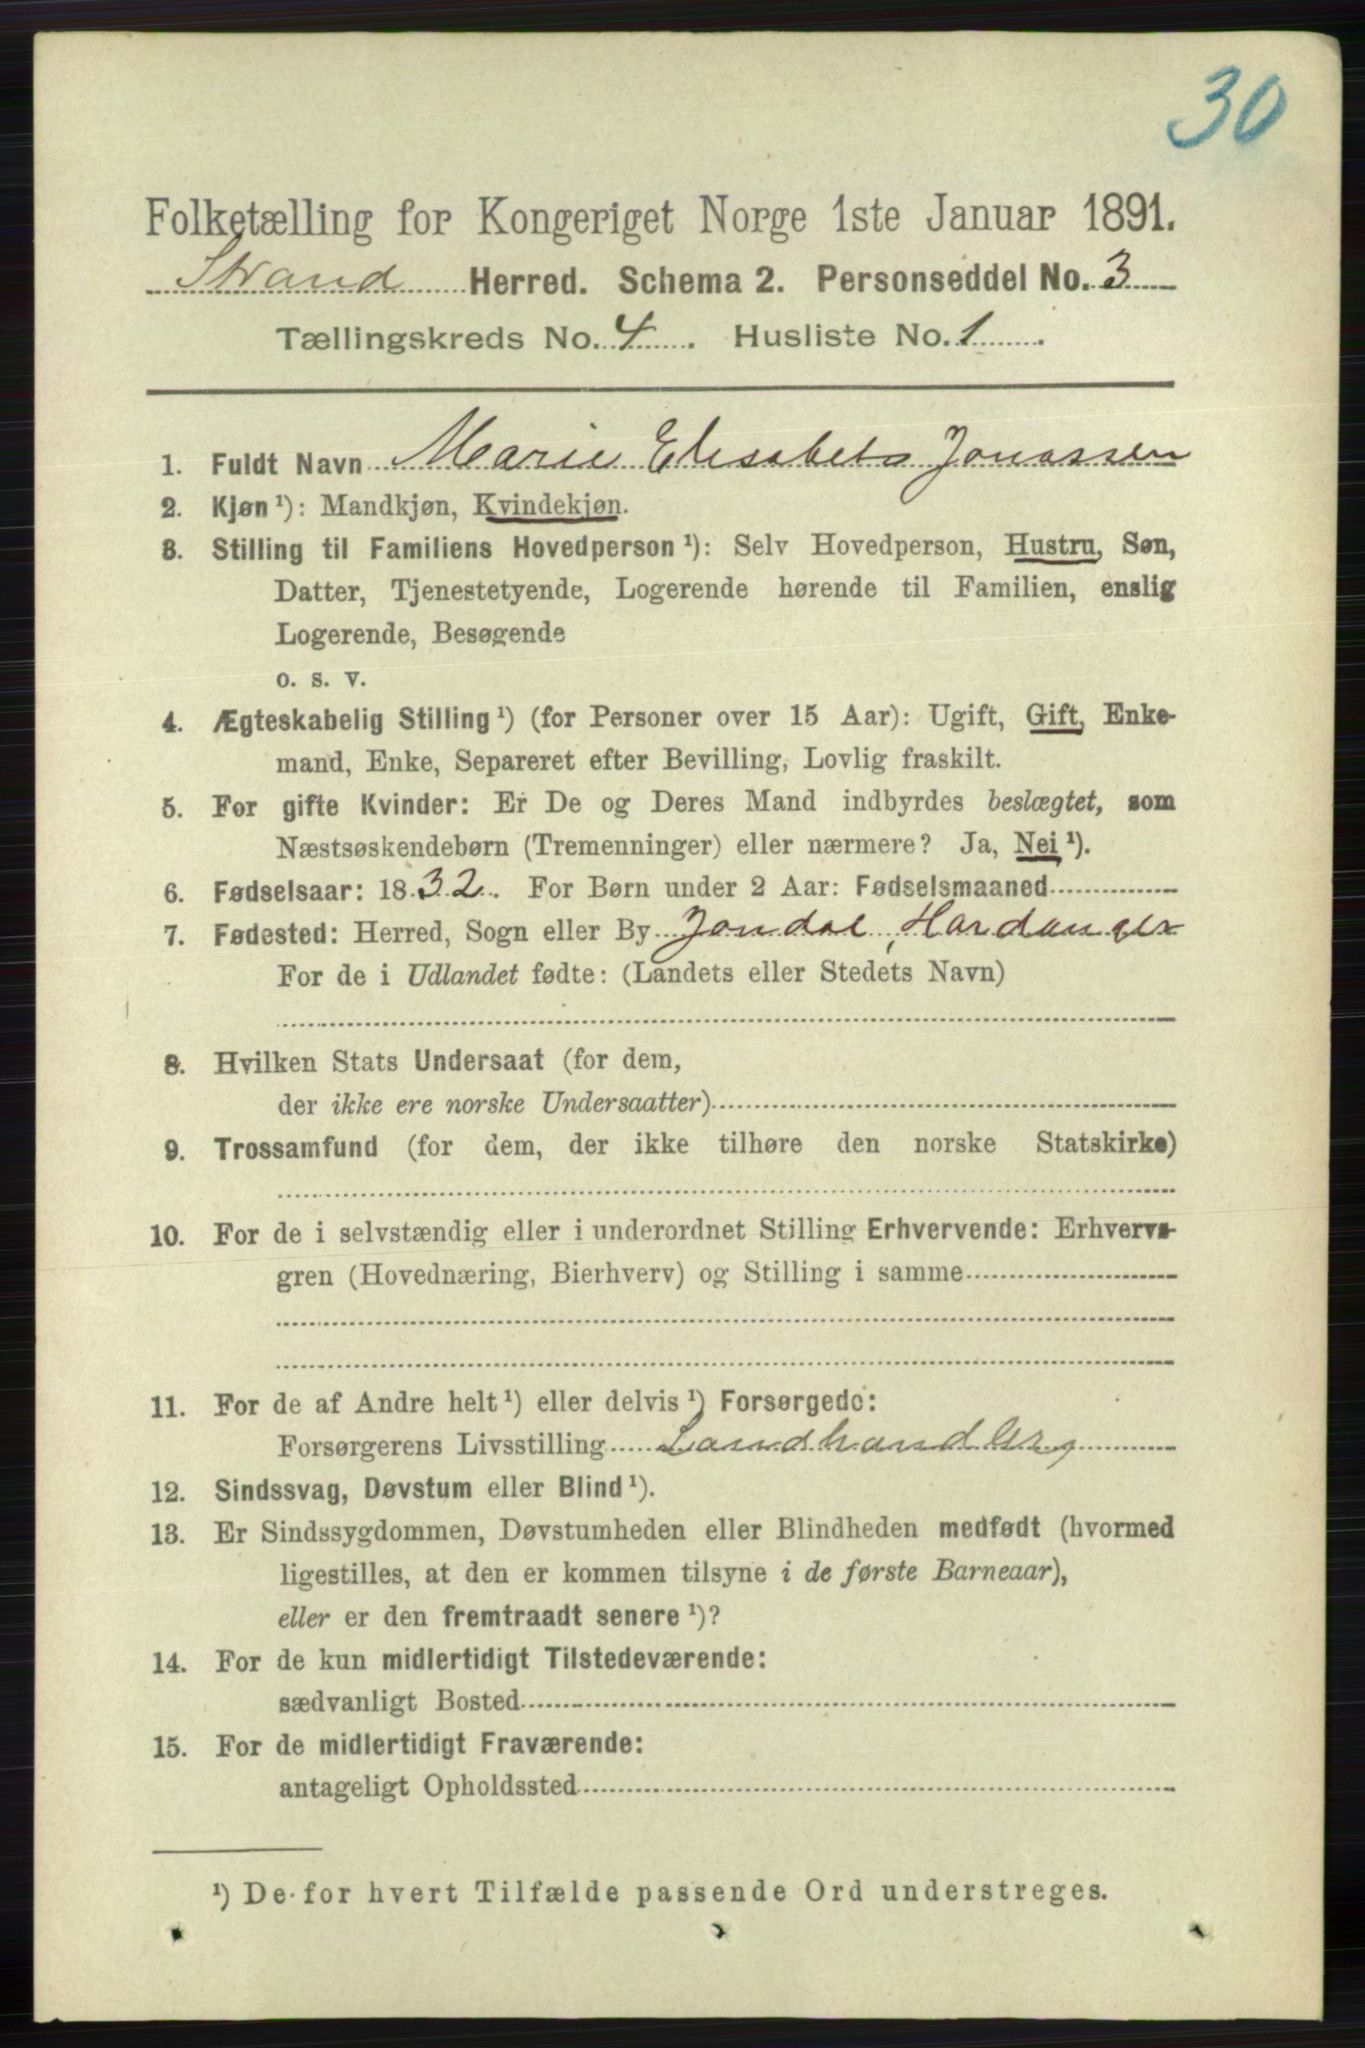 30
Folketælling for Kongeriget Norge 1ste Januar 1891.
Strand Herred. Schema 2. Personseddel No. 3
Tællingskreds No. 4. Husliste No. 1.
1. Fuldt Navn Marie Elisabeth Jonassen
2. Kjøn ¹): Mandkjøn, Kvindekjøn.
3. Stilling til Familiens Hovedperson ¹): Selv Hovedperson, Hustru, Søn,
Datter, Tjenestetyende, Logerende hørende til Familien, enslig
Logerende, Besøgende
o. s. v.
4. Ægteskabelig Stilling ¹) (for Personer over 15 Aar): Ugift, Gift, Enke-
mand, Enke, Separeret efter Bevilling, Lovlig fraskilt.
5. For gifte Kvinder: Er De og Deres Mand indbyrdes beslægtet, som
Næstsøskendebørn (Tremenninger) eller nærmere? Ja, Nei ¹).
6. Fødselsaar: 1832. For Børn under 2 Aar: Fødselsmaaned
7. Fødested: Herred, Sogn eller By Jondal, Hardanger
For de i Udlandet fødte: (Landets eller Stedets Navn)
8. Hvilken Stats Undersaat (for dem,
der ikke ere norske Undersaatter)
9. Trossamfund (for dem, der ikke tilhøre den norske Statskirke)
10. For de i selvstændig eller i underordnet Stilling Erhvervende: Erhvervs-
gren (Hovednæring, Bierhverv) og Stilling i samme
11. For de af Andre helt ¹) eller delvis ¹) Forsørgede:
Forsørgerens Livsstilling Landhandler,
12. Sindssvag, Døvstum eller Blind ¹).
13. Er Sindssygdommen, Døvstumheden eller Blindheden medfødt (hvormed
ligestilles, at den er kommen tilsyne i de første Barneaar),
eller er den fremtraadt senere ¹)?
14. For de kun midlertidigt Tilstedeværende:
sædvanligt Bosted
15. For de midlertidigt Fraværende:
antageligt Opholdssted
¹) De for hvert Tilfælde passende Ord understreges.